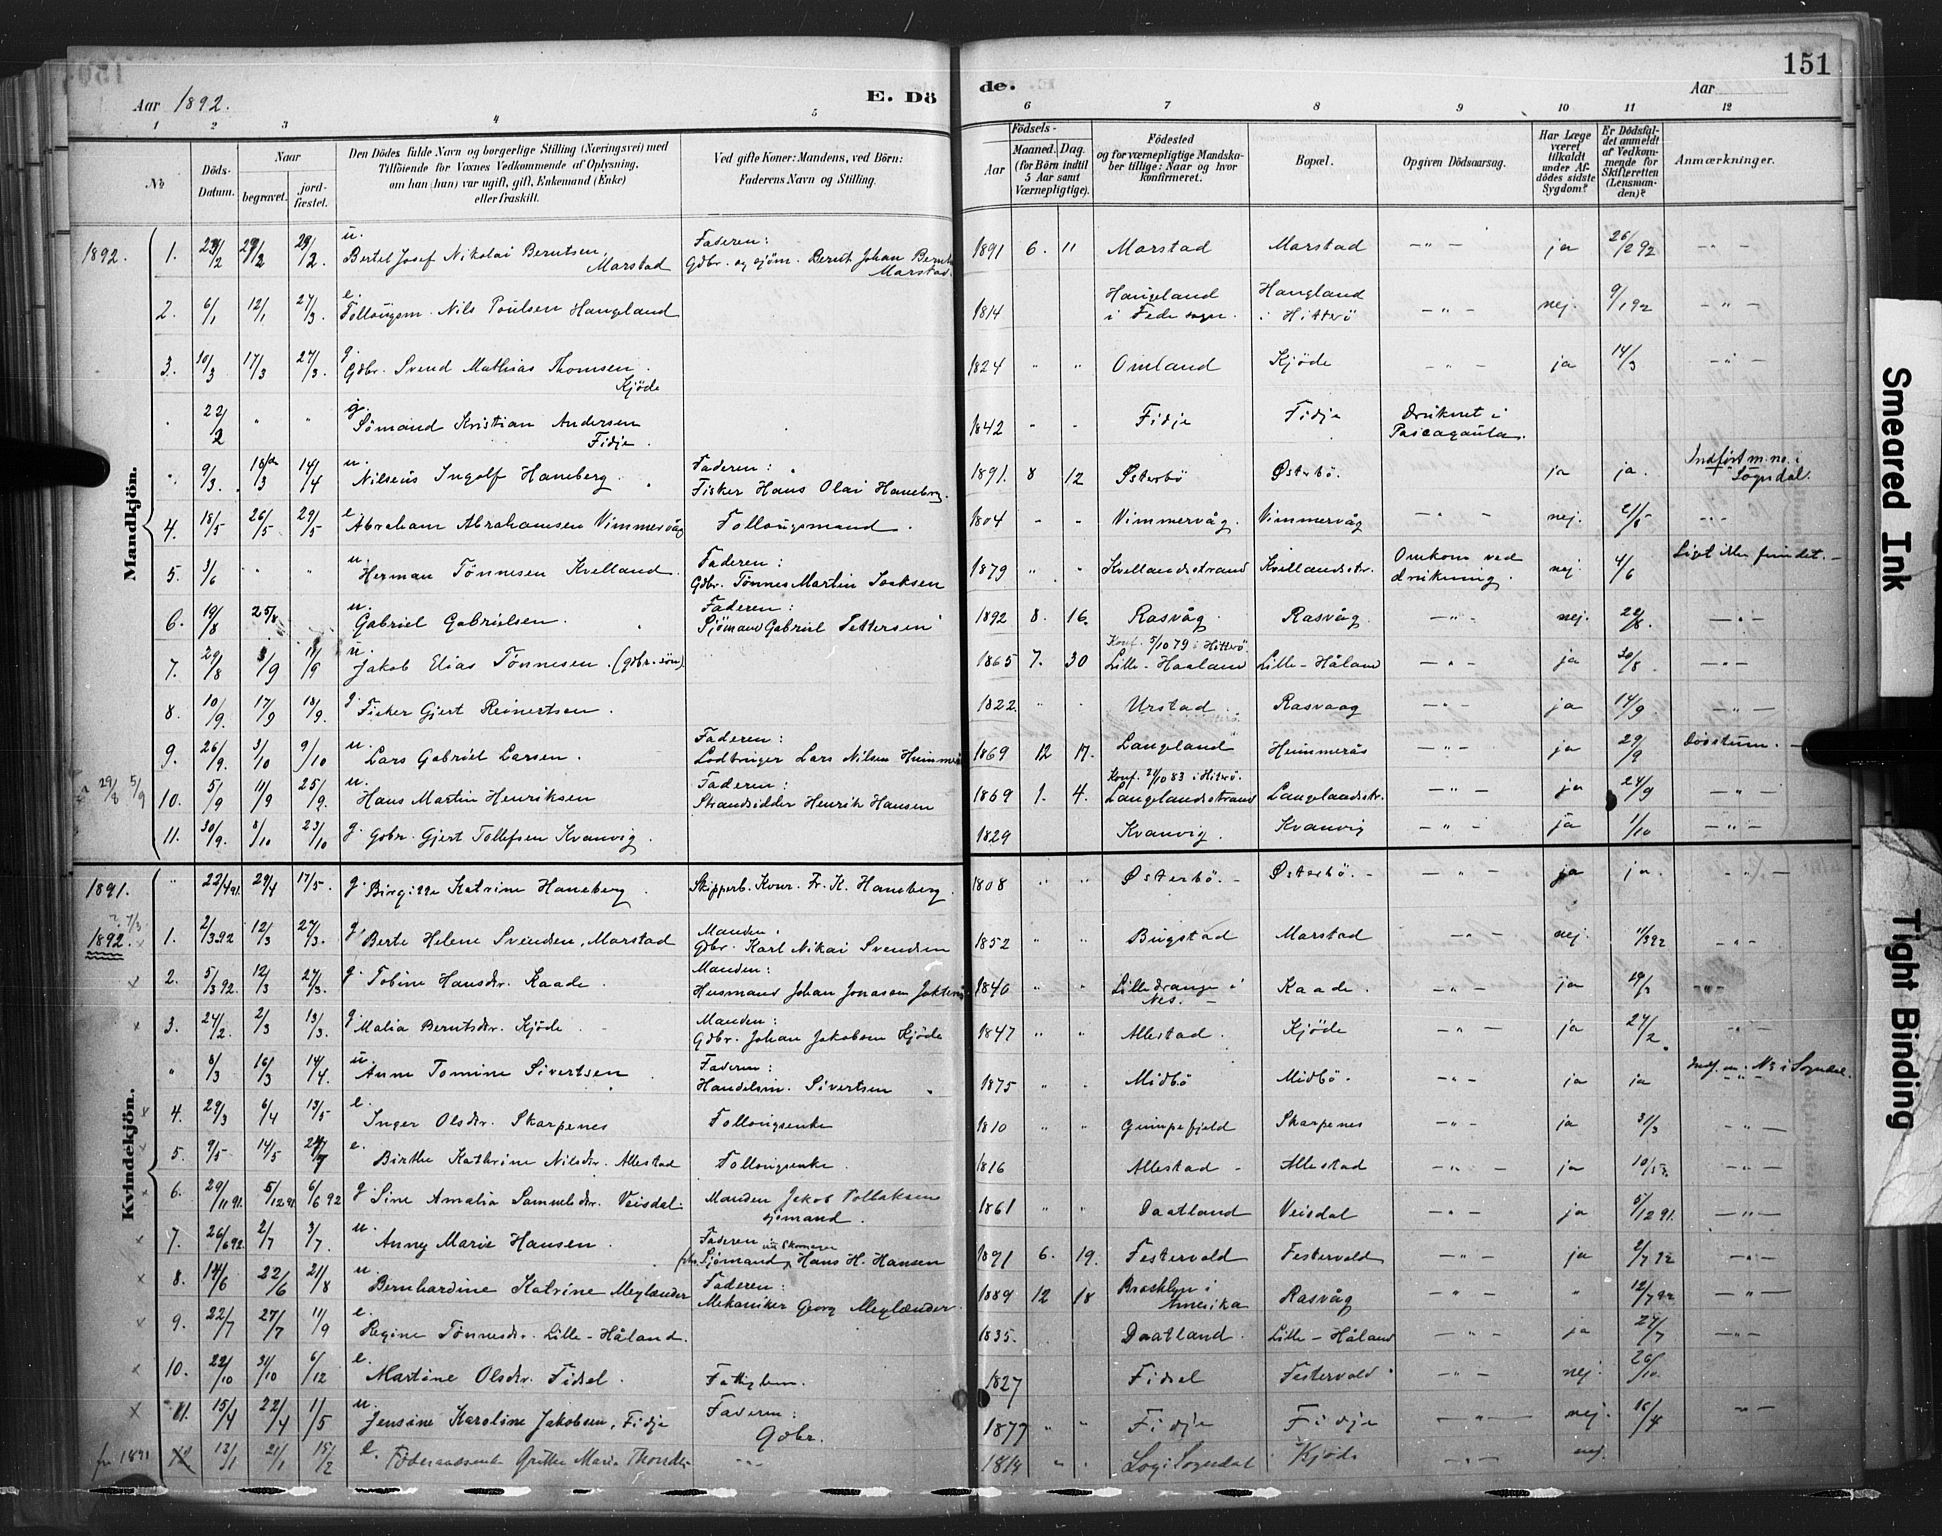 151
Aar 1892.
E. Dö
de.
Aar
1 2 3 4 5 6 7 8 9 10 11 12
No
Döds-Datum.
Naar
begravet.
jord-fæstet.
Den Dödes fulde Navn og borgerlige Stilling (Næringsvei) med
Tilföiende for Voxnes Vedkommende af Oplysning,
om han (hun) var ugift, gift, Enkemand (Enke)
eller fraskilt.
Ved gifte Koner: Mandens, ved Börn:
Faderens Navn og Stilling.
Födsels-
Aar
Maaned.
Dag.
(for Börn indtil 5 Aar samt Værnepligtige).
Födested
og for værnepligtige Mandska-
ber tillige: Naar og hvor
konfirmeret.
Bopæl.
Opgiven Dödsaarsag.
Har Læge været tilkaldt under Af-dödes sidste Sygdom?
Er Dödsfal-det anmeldt af Vedkom-mende for Skifteretten (Lensman-den)?
Anmærkninger.
Mandkjön.
1892. 1. 29/2 29/2 u. Bertel Josef Nikolai Berntsen, Marstad Faderen: Gdbr. og sjöm. Bernt Johan Marstad 1891 6. 11 Marstad Marstad — " — ja 26/2 92 — " —
2. 6/1 12/1 27/3. e. Nils Poulsen Haugland 1814 Haugeland i Fede sogn. Haugland i Hitterö — " — nej. 9/1 92 — " —
3. 10/3 17/3 27/3. g. Gdbr. Svend Mathias Thomsen. Kjöde 1824 " " Omland Kjöde — " — ja 14/3 — " —
22/2 " " g. Sömand Kristian Andersen Fidje. 1842 - - Fidje Fidje Druknet i Pascagaula.
9/3. 16/3 14/4 u. Nilseus Ingolf Haneberg. Faderen: Fisker Hans Olai Haneberg. 1891. 8 12 Østerbö Østerbö. ja ja. Indført m. no. i Sogndal.
4. 18/5 26/5 29/5 e. Abraham Abrahamsen Vimmervåg Follougsmand. 1804 - - Vimmervåg. Vimmervåg — " — nej. — " —
5. 3/6 " " u. Herman Tönnesen Kvelland. Faderen: Gdbr. Tönnes Martin 1879 " " Kvellandsstrand Kvellandsstr. Omkom ved drukning. nej 4/6 Liget ikke fundet. —
6. 19/8 25/8 u. Gabriel Gabrielsen. Faderen: Sjömand Gabriel Pettersen 1892 8. 16. Rasvåg. Rasvåg. — " — nej. 22/8. — " —
7. 29/8 /9 u. Jakob Elias Tönnesen. (gdbr. sön) 1865 7. 30 Konf. 5/10 79 i Hitterö. Lille-Haaland Lille-Håland — " — ja 30/8. — " —
8. 10/9. 17/9 18/9. g. Fisker Gjert Reinertsen. 1822. Urstad. Rasvaag — " — ja 14/9. — " —
9. 26/9. 3/10 9/10 u. Lars Gabriel Larsen. Faderen: Lars Nilsen 1869 12 17. Langeland Heimmerås — " — ja 29/9
29/8 5/9 10. 5/9 11/9 25/9. u. Hans Martin Henriksen Faderen: Strandsidder Henrik Hansen 1869 1. 4. Konf. 21/10 83 i Hitterö. Langelandsstrand Langelandsstr. — " — ja 24/9 — " —
11. 30/9. 8/10 23/10 g. Gdbr. Gjert Tollefsen Kvanvig. 1829 Kvanvig. Kvanvig — " — ja 1/10 — " —
Kvindekjön.
1891. " 22/4 91. 29/4 17/5. g. Birgitte Katrine Haneberg. Skipperk. Fr. K. Haneberg. 1808 " " Østerbö. - Østerbö. - — " — ja ja. — " —
1892. 1. 2/3 92 12/3 27/3. g. Berte Helene Svendsen, Marstad Manden: Gdbr. Karl Nikai Svendsen 1852 " " Bugstad Marstad — " — nej. 11/3 92 — " —
2. 5/3 92. 12/3 27/3. g. Tobine Hansdtr. Kaade. Manden: Husmand Johan Jonassen 1840 " " Lilledrange i Nes. - Kaade. — " — ja 19/3 — " —
3. 24/2. 2/3 13/3. g. Malia Berntsdtr. Kjöde. Manden: Gdbr. Johan Jakobsen Kjöde 1847 " " Allestad. Kjöde — " — ja 27/2 — " —
" 8/3 16/3 14/4. u. Anne Tomine Sivertsen Faderen: Handelsm. Sivertsen 1875 " " Midbö Midbö. — " — ja ja Indf. m. No i Sogndal.
4. 29/3 6/4 13/5 e. Inger Olsdtr. Skarpenes Follougsenke 1810 " " Gumpefjeld Skarpenes — " — ja 31/3 — " —
5. 9/5 14/5 e. Birthe Kathrine Nilsdtr. Allestad Follougsenke. 1816 Allestad - Allestad — " — ja — " —
6. 29/11 91. 5/12 91 6/6 92 g. Sine Amalia Samuelsdtr. Veisdal. Manden Jakob Tollaksen sjömand. 1861 " " Daatland Veisdal — " — ja 5/12 91. — " —
7. 26/6 92. 2/7 3/7. u. Anny Marie Hansen. Faderen: Sjömand Hans H. Hansen 1891 6. 19. Festervold Festervold — " — ja 2/7 92 — " —
8. 14/6 22/6 21/8 u. Bernhardine Katrine Meglænder Faderen: Mekaniker Georg Meglænder. 1889 12 18 Brooklyn i Amerika Rasvåg " " 12/7 92 — " —
9. 22/7 27/7 11/9 e. Regine Tönnesdtr. Lille-Håland. 1835. Daatland. Lille-Håland — " — ja 27/7 — " —
10. 22/10 31/10 6/12 e. Martine Olsdtr. Fidsel. Fattiglem. 1827 Fidsel Festervold — " — nej. 26/10
11. 15/4 22/4 1/5 u. Jensine Karoline Jakobsen, Fidje Faderen: Gdbr. 1877 " " Fidje Fidje — " — nej. 16/4 — " —
fr. 1891 13/1 21/1 15/2 e. Grethe Maria — " — 1814 " " Log i Sogndal Kjöde — " — nej.
Smeared Ink
Tight Binding